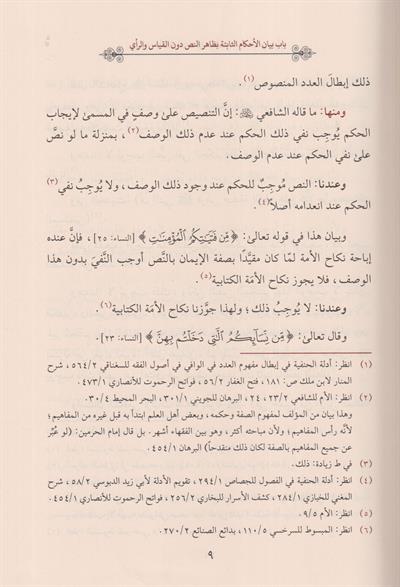 باب بيان الأحكام الثابتة بظاهر النص دون القياس والرأي
ذلك إبطالَ العدد المنصوص(١).
ومنها: ما قاله الشافعي ﵁: إنَّ التنصيص علىٰ وصفٍ في المسمىٰ لإيجاب
الحكم يُوجِب نفي ذلك الحكم عند عدم ذلك الوصف(٢)، بمنزلة ما لو نصَّ
علىٰ نفي الحكم عند عدم الوصف.
وعندنا: النص مُوجِبٌ للحكم عند وجود ذلك الوصف، ولا يُوجِبُ نفي(٣)
الحكم عند انعدامه أصلاً(٤).
وبيان هذا في قوله تعالىٰ: ﴿مِّن فَتَيَٰتِكُمُ ٱلْمُؤْمِنَٰتِ﴾ [النساء: ٢٥]، فإنَّ عنده
إباحة نكاح الأمة لمَّا كان مقيَّدًا بصفة الإيمان بالنَّص أوجب النَّفيَ بدون هذا
الوصف، فلا يجوز نكاح الأمَة الكتابية(٥).
وعندنا: لا يُوجِبُ ذلك؛ ولهذا جوَّزنا نكاح الأمَة الكتابية(٦).
وقال تعالىٰ: ﴿مِّن نِّسَآئِكُمُ ٱلَّٰتِى دَخَلْتُم بِهِنَّ﴾ [النساء: ٢٣].
(١) انظر: أدلة الحنفية في إبطال مفهوم العدد في الوافي في أصول الفقه للسغناقي ٥٦٤/٢، شرح
المنار لابن ملك ص: ١٨١، فتح الغفار ٥٦/٢، فواتح الرحموت للأنصاري ٤٧٣/١.
(٢) انظر: الأم للشافعي ٢٣/٢، ٢٤، البرهان للجويني ٣٠١/١، البحر المحيط ٣٠/٤.
وهذا بيان من المؤلف لمفهوم الصفة وحكمه، وبعض أهل العلم ابتدأ به قبل غيره من المفاهيم؛
لأنَّه رأس المفاهيم؛ ولأن مباحثه أكثر، وهو بين الفقهاء أشهر. بل قال إمام الحرمين: (لو عُبِّر
عن جميع المفاهيم بالصفة لكان ذلك متقدحاً) البرهان ٤٥٤/١.
(٣) في ط زيادة: ذلك.
(٤) انظر: أدلة الحنفية في الفصول للجصاص ٢٩٤/١، تقويم الأدلة لأبي زيد الدبوسي ٥٨/٢، شرح
المغني للخبازي ٢٨٤/١، كشف الأسرار للبخاري ٢٥٦/٢، فواتح الرحموت للأنصاري ٤٥٤/١.
(٥) انظر: الأم ٩/٥.
(٦) انظر: المبسوط للسرخسي ١١٠/٥، بدائع الصنائع ٢٧٠/٢.
٩